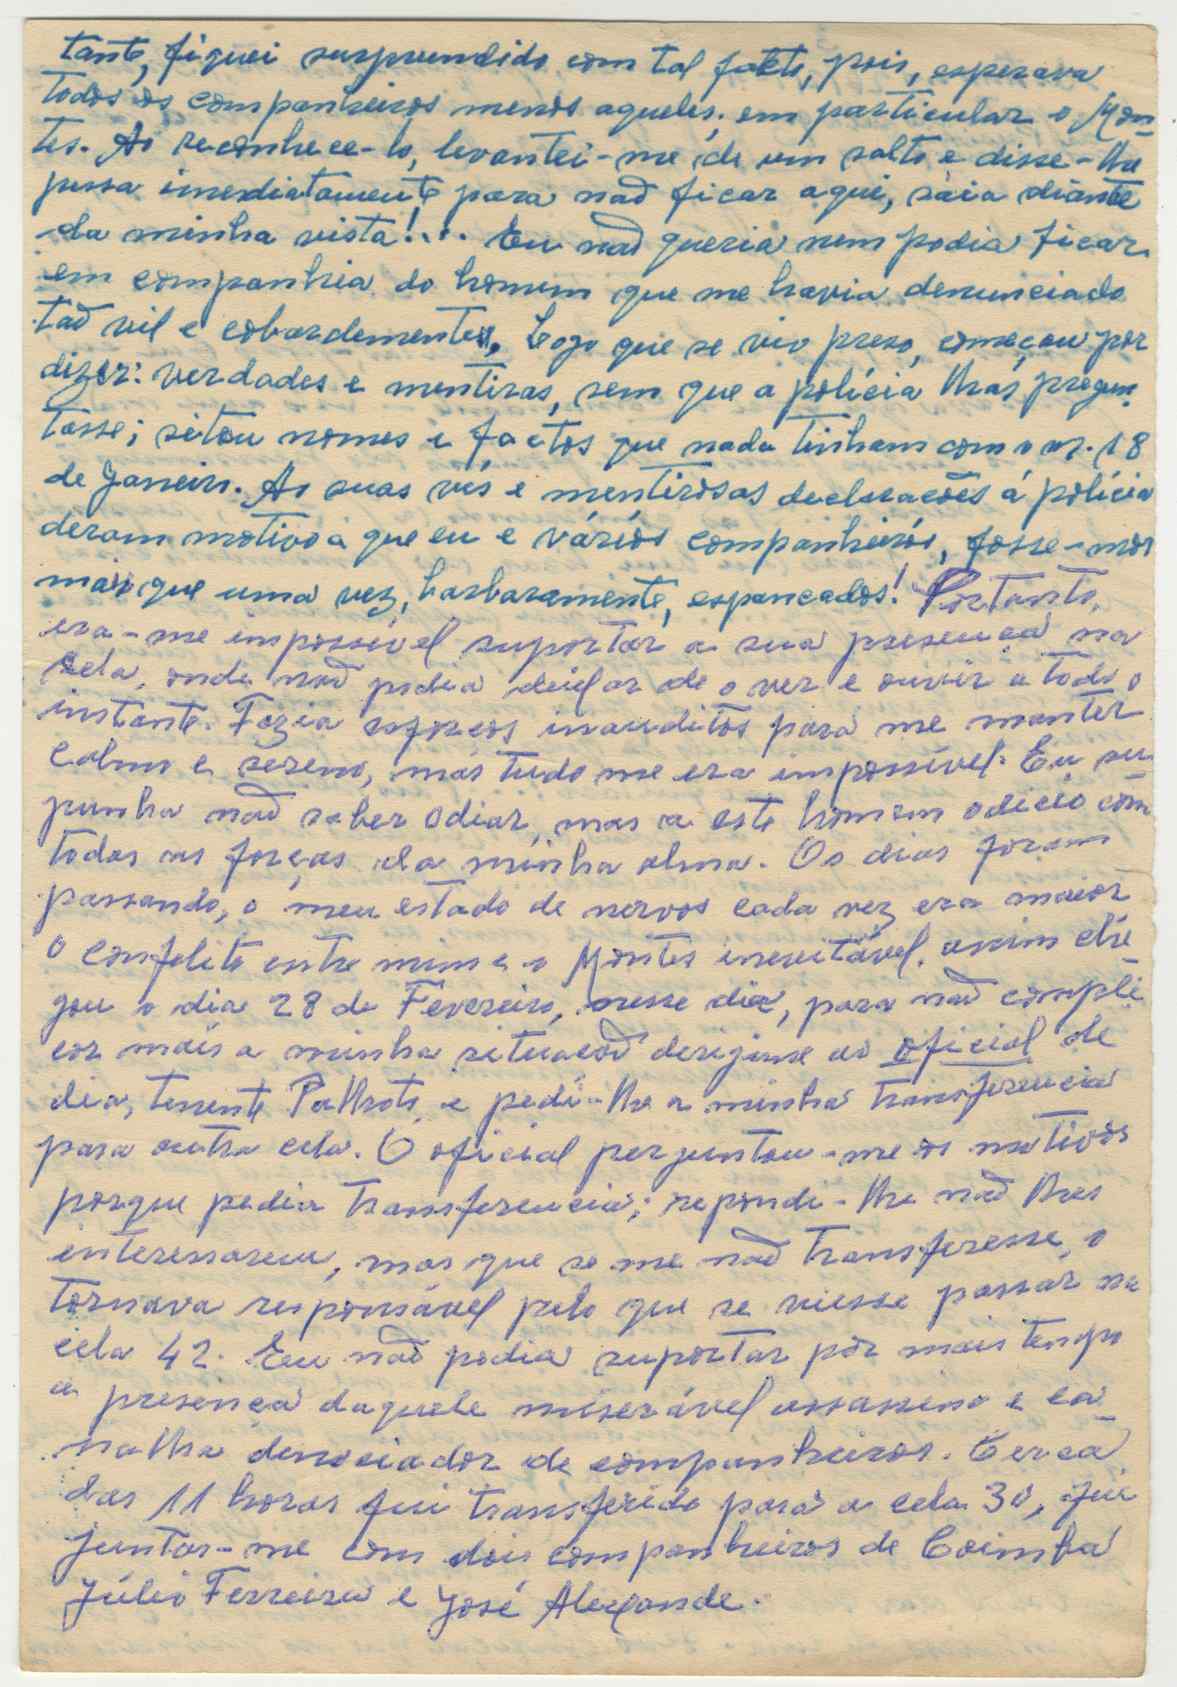 tante, fiquei surprendido com tal facto, pois, esperava
todos os companheiros menos aqueles; em particular o Mon-
tes. Ao reconhece-lo, levantei-me de um salto e disse-lhe
pessa imediatamente para não ficar aqui, sáia diante
da minha vista!... Eu não queria nem podia ficar
em companhia do homem que me havia denunciado
tão vil e cobardemente. Logo que se vio preso, começou por
dizer: verdades e mentiras, sem que a polícia lhas pregun-
tasse; sitou nomes e factos que nada tinham com o 18
de Janeiro. As suas vis e mentirosas declarações á polícia
deram motivo a que eu e vários companheiros, fosse-mos
mais que uma vez, barbaramente, espancados! Portanto,
era-me impossível suportar a sua presença na
sela, onde não podia deixar de o ver e ouvir a todo o
instante. Fazia esforços inauditos para me manter
calmo e sereno, mas tudo me era impossível. Eu su-
punha não saber odiar, mas a este homem odieio com
todas as forças da minha alma. Os dias foram
passando, o meu estado de nervos cada vez era maior
o conflito entre mim e o Montes inevitável. assim che-
gou o dia 28 de Fevereiro, nesse dia, para não compli-
car mais a minha situação derigime ao oficial de
dia, tenente Palhoto e pedi-lhe a minha transferencia
para outra cela. O oficial perjuntou-me os motivos
porque pedia transferencia; repondi-lhe não lhes
interessarem, mas que se me não transferesse, o
tornava responsável pelo que se viesse passar na
cela 42. Eu não podia suportar por mais tempo
a presença daquele miserável assassino e ca-
nalha denociador de companheiros. Cerca
das 11 horas fui transferido para a cela 30, fui
juntar-me com dois companheiros de Coimbra
Júlio Ferreira e José Alexandre.